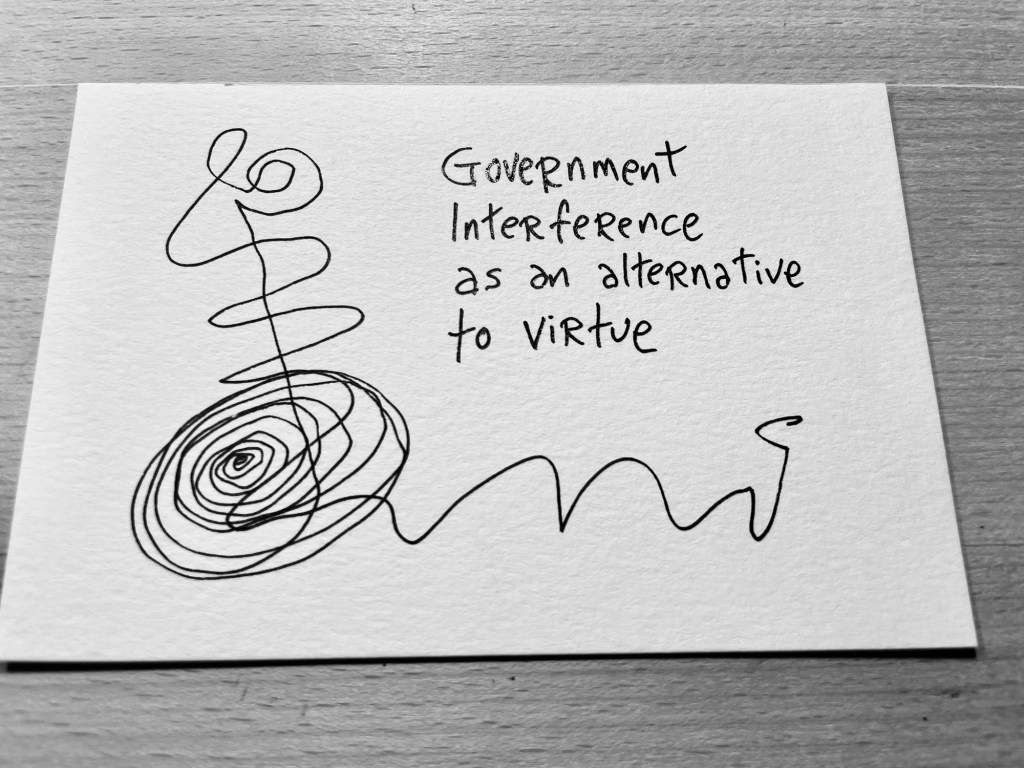 Government
Interference
as an alternative
to virtue